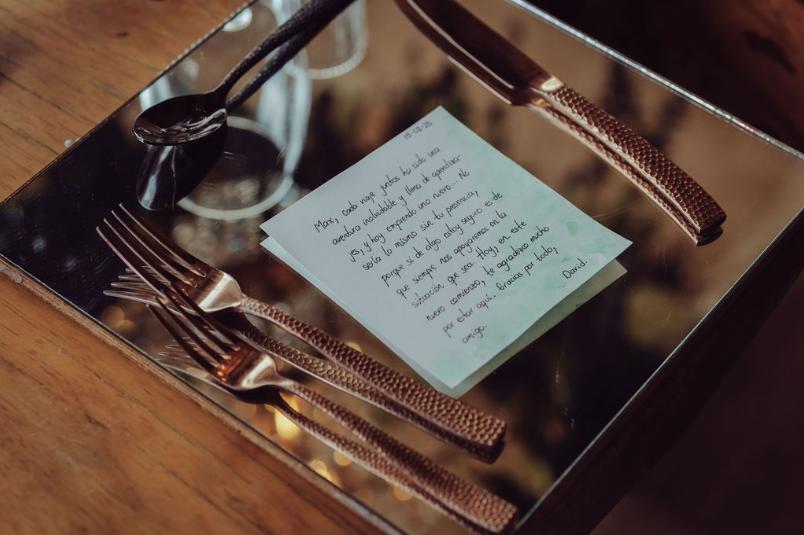 15-02-25
Maxi, cada viaje juntos ha sido una
aventura inolvidable y llena de aprendiza-
jes, y hoy emprendo uno nuevo... No
sería lo mismo sin tu presencia,
porque si de algo estoy seguro es de
que siempre nos apoyaremos en la
situación que sea. Hoy, en este
nuevo comienzo, te agradezco mucho
por estar aquí. Gracias por todo,
amigo.
David.